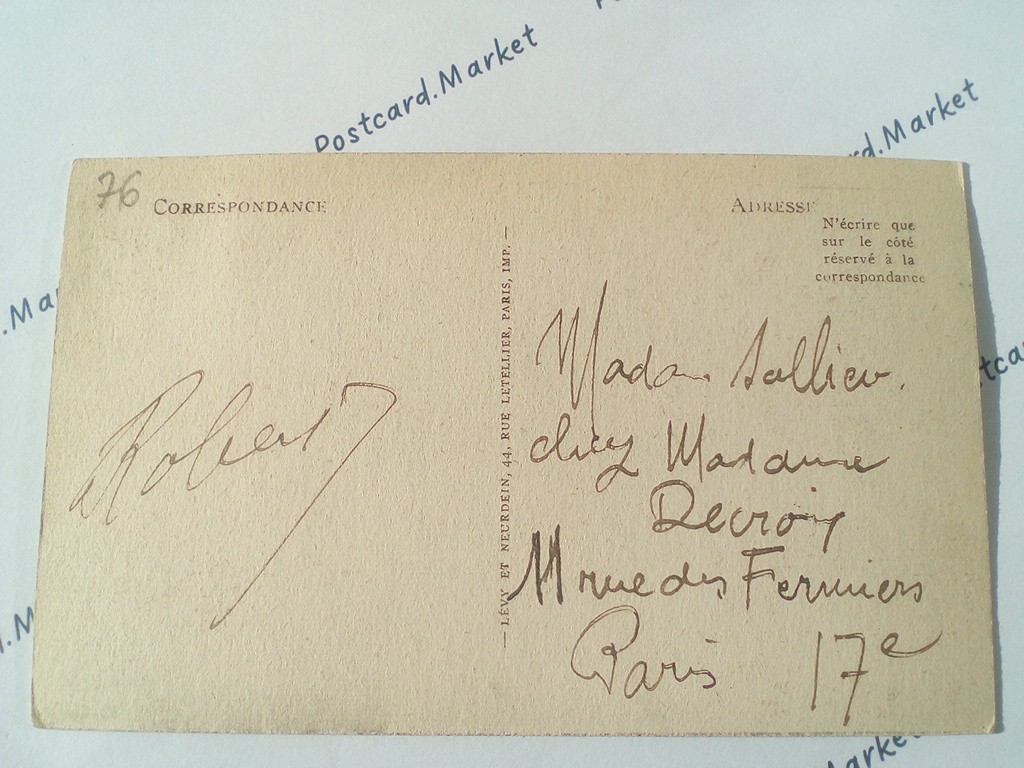 Postcard.Market
rd.Market
76
CORRESPONDANCE
ADRESSE
N'écrire que
sur le côté
réservé à la
correspondance
— LÉVY ET NEURDEIN, 44, RUE LETELLIER, PARIS, IMP. —
Robert
Madame
chez Madame
Decroix
rue des Fermiers
Paris 17e